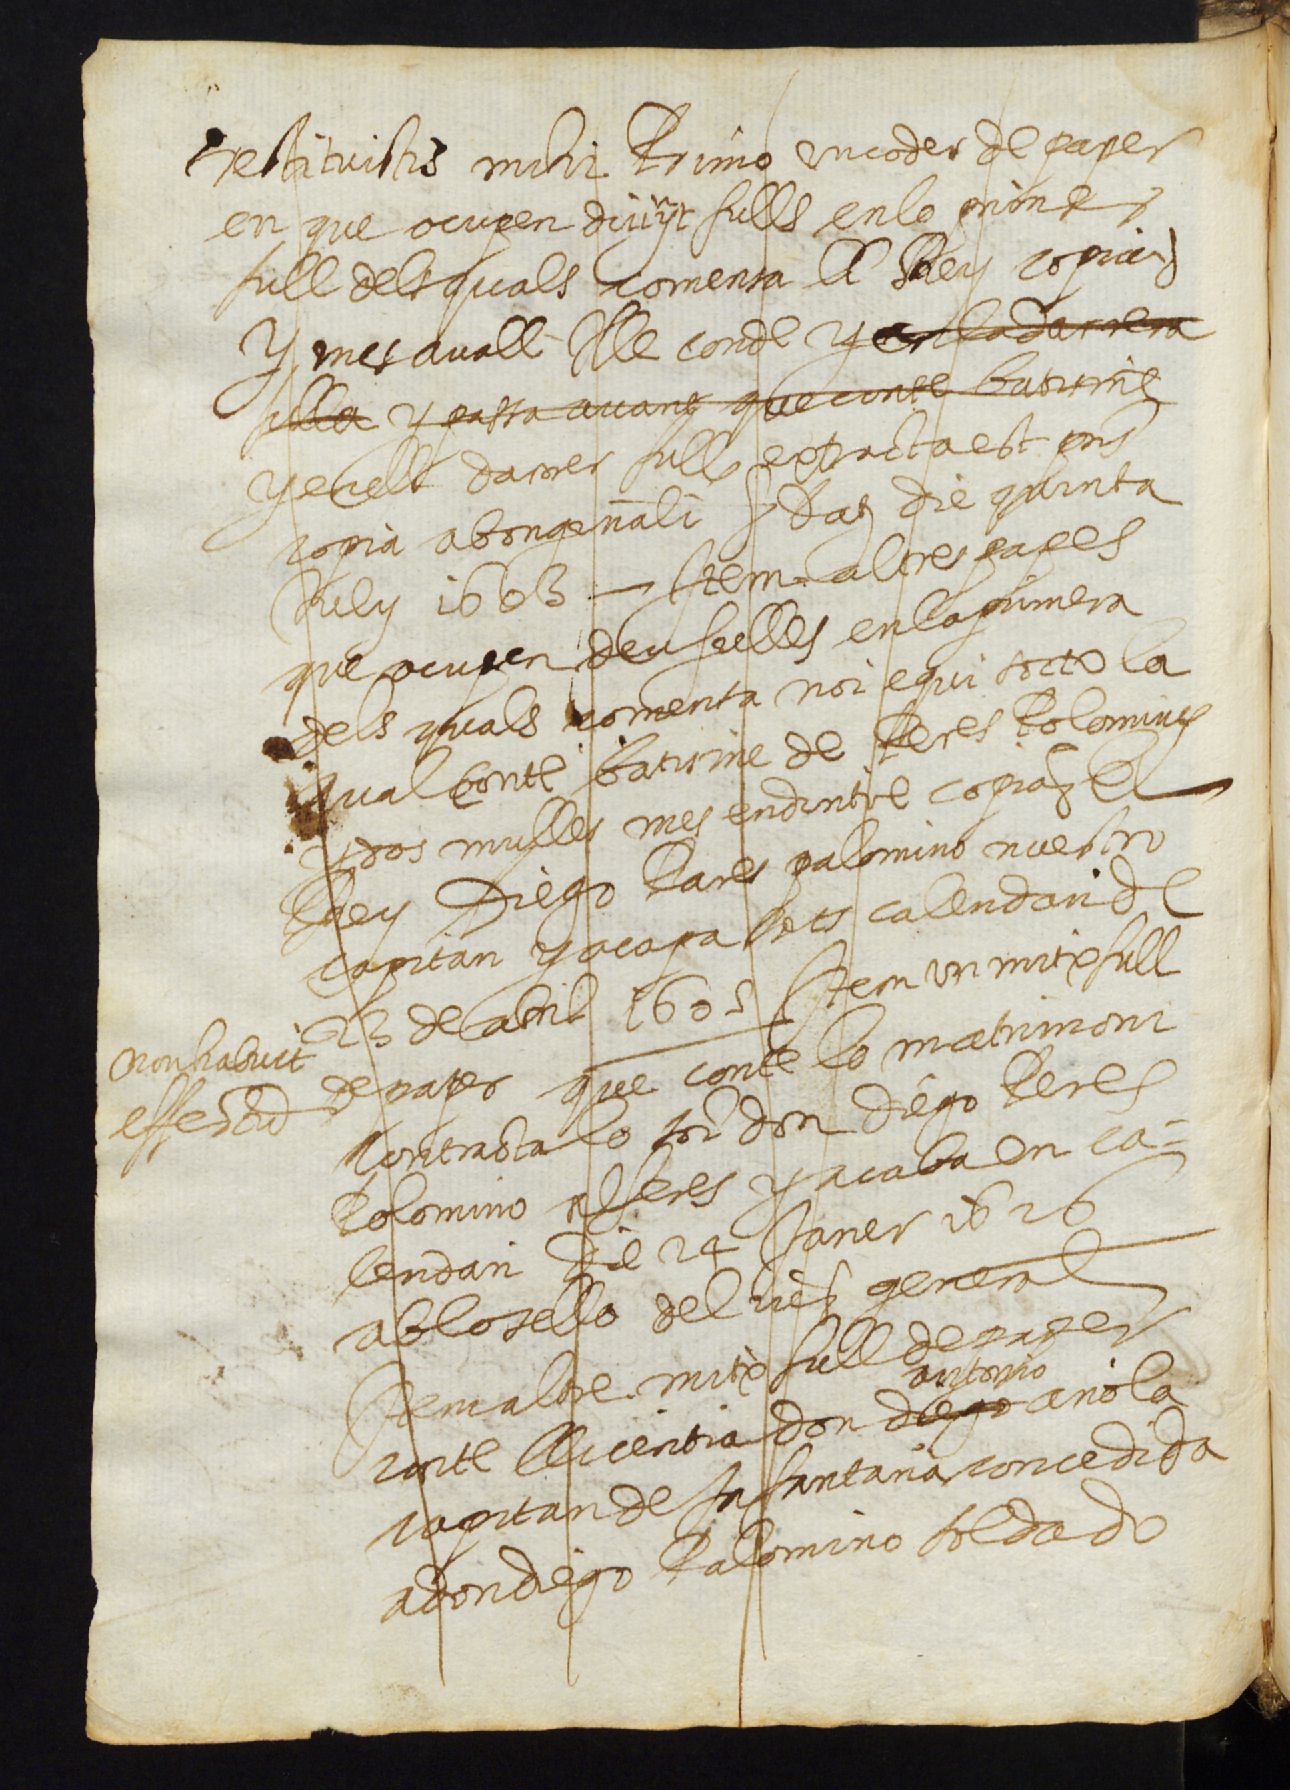 restituistis mihi Primo un coder de paper
en que ocupen divuyt fulls en lo primer
full dels quals comensa El Rey copia
y mes avall Ille conde y en la darrera
fulla y passa avant que conte batisme
y en lo darrer full extracta est pns
copia ab originali s Dat die quinta
July 1603 — Item altres papes
que ocupen deu fulles en la primera
dels quals comensa noi equi sotto la
qual conte batisme de Peres Polomino
y dos mulles mes endintre copia El
Rey Diego Pares palomino nuestro
capitan y acapa sots calendari de
23 de abril 1605 Item un mitx full
de paper que conte lo matrimoni
contracta lo sor don diego Peres
Polomino alferes y acaba en ca=
lendari die 24 Janer 1626
ab lo sello del vicr general
Item altre mitx full de paper
antonio
conte llicentia don diego anola
capitan de Infantaria concedida
a don diego Palomino soldado
non habuit
effectum